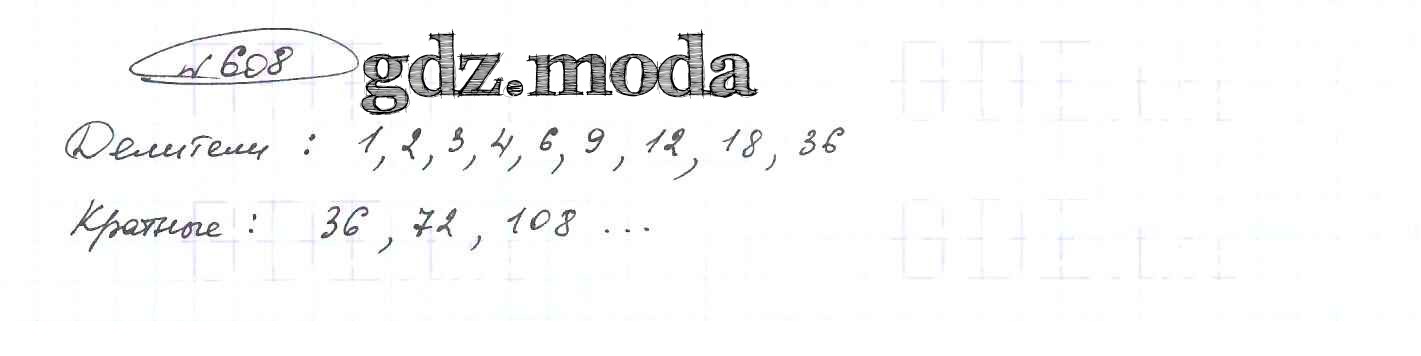 № 608 gdz.moda
Делители : 1, 2, 3, 4, 6, 9, 12, 18, 36
Кратные : 36, 72, 108 ...